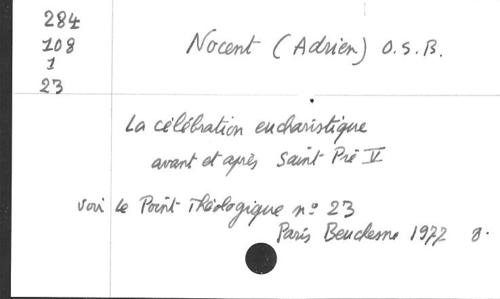 284
108
1
23
Nocent (Adrien) O.S.B.
La célébration eucharistique
avant et après Saint Pie V
voir Le Point Théologique nº 23
Paris Beauchesne 1977 8.